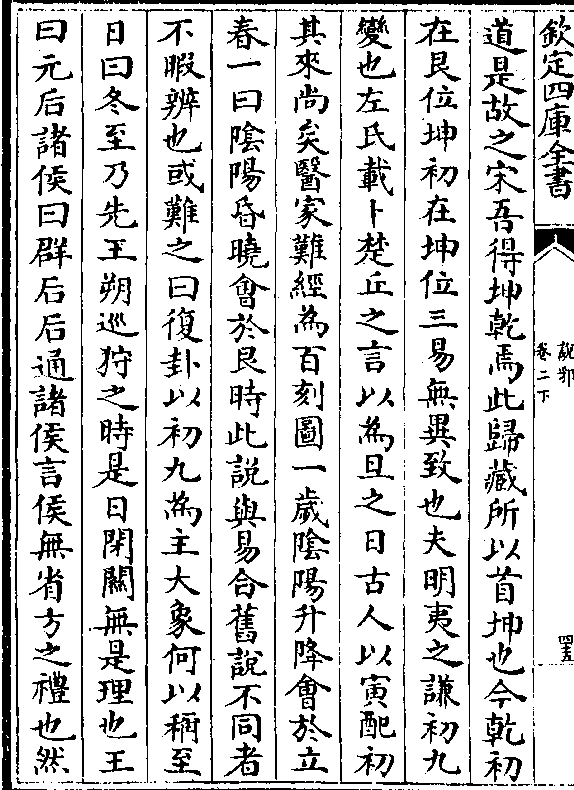 欽定四庫全書
說郛
卷二下
四五
道是故之宋吾得坤乾焉此歸藏所以首坤也今乾初
在艮位坤初在坤位三易無異致也夫明夷之謙初九
變也左氏載卜楚丘之言以為旦之日古人以寅配初
其來尚矣醫家難經為百刻圖一歲陰陽升降會於立
春一日陰陽昏曉會於艮時此說與易合舊說不同者
不暇辨也或難之曰復卦以初九為主大象何以稱至
日曰冬至乃先王朔巡狩之時是日閉關無是理也王
曰元后諸侯曰群后后通諸侯言侯無省方之禮也然